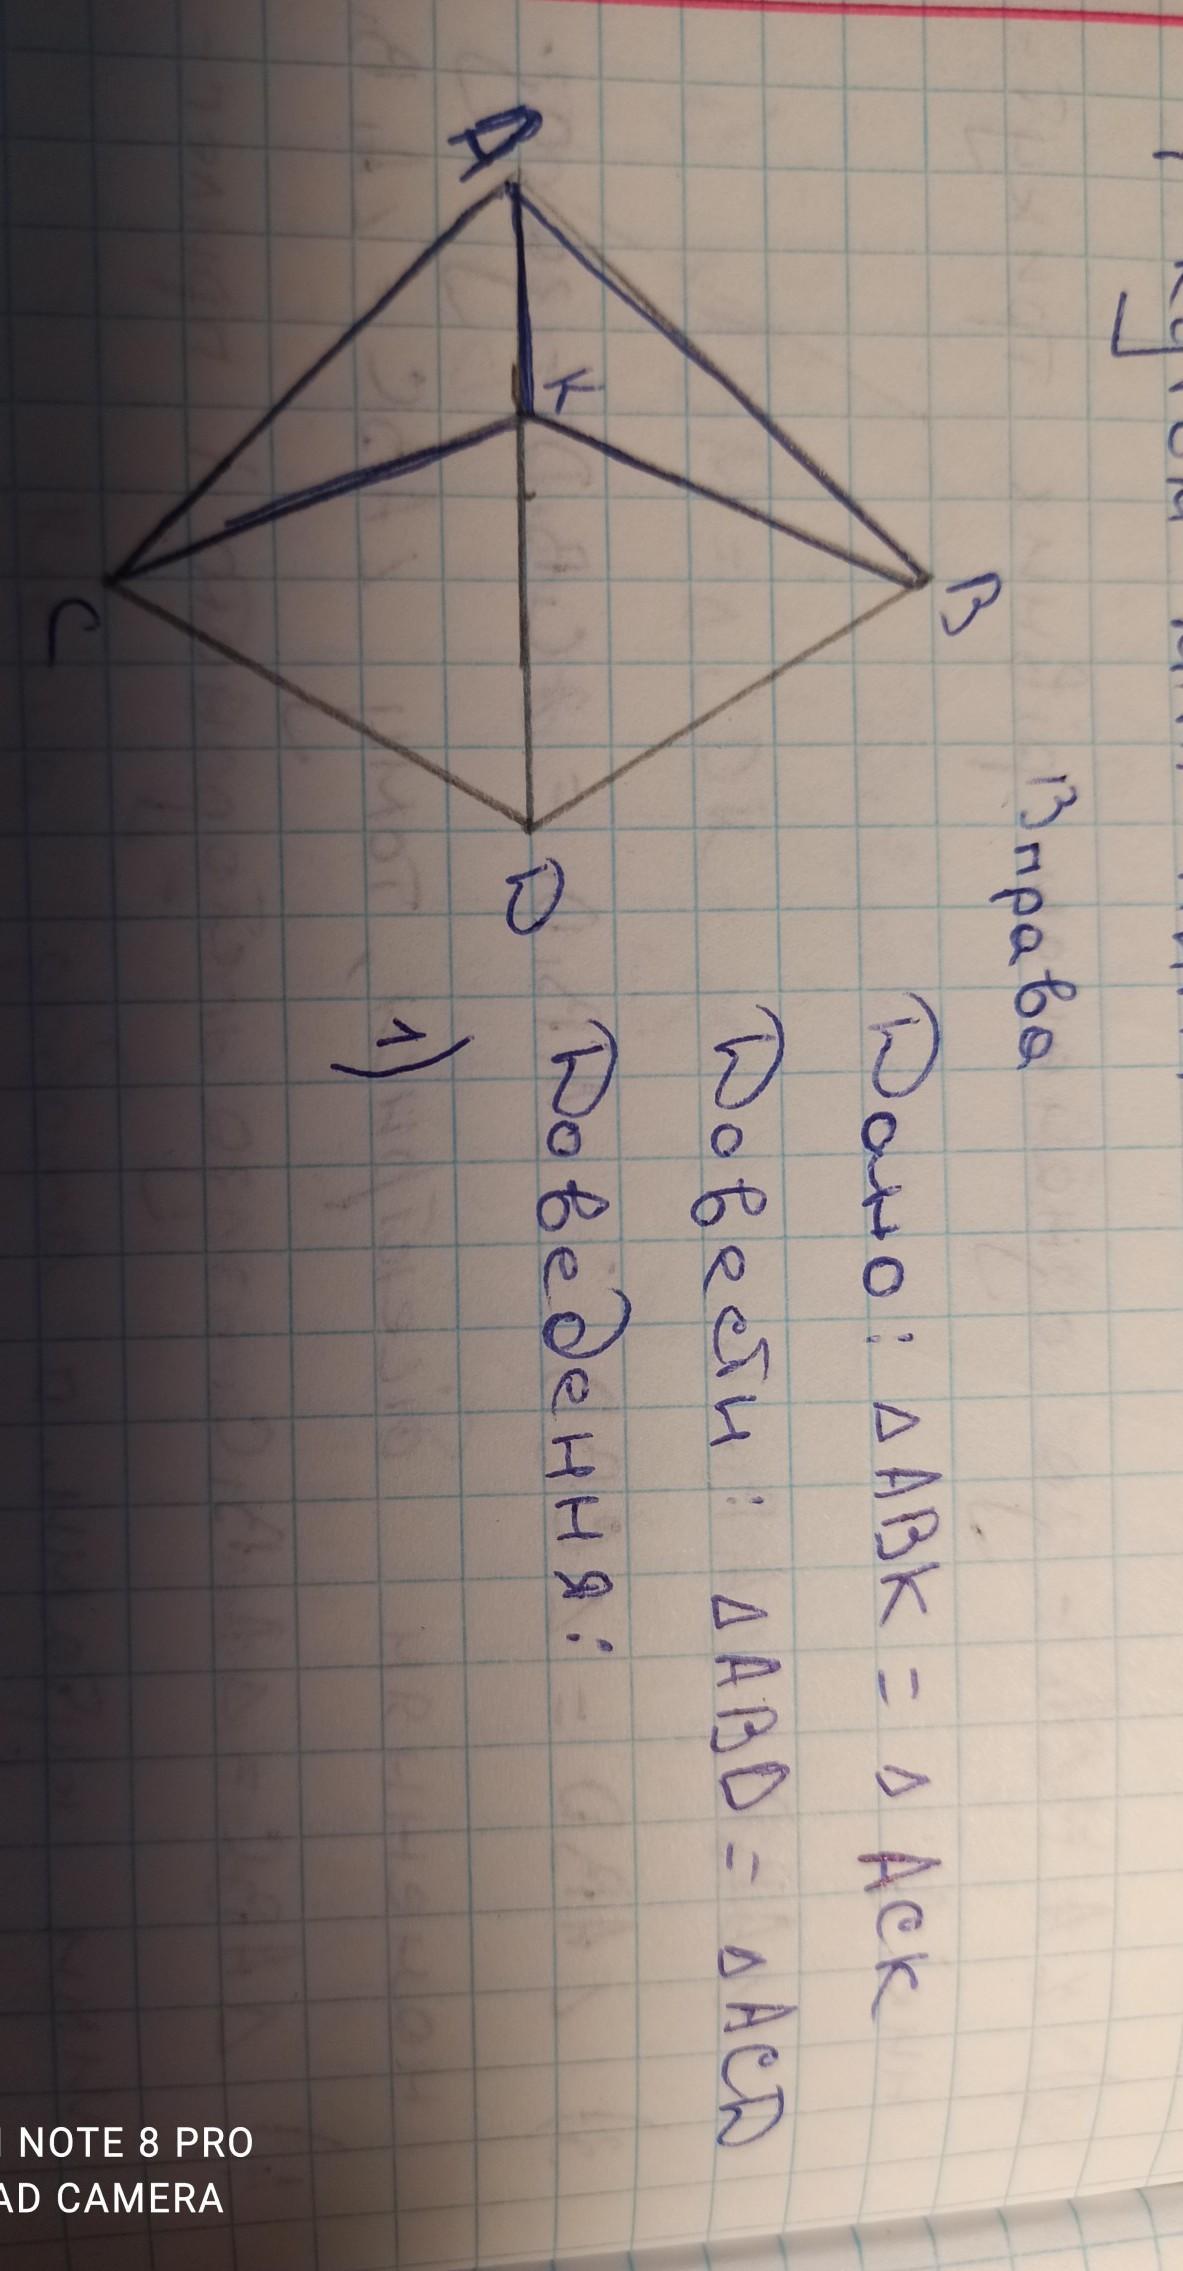 Вправа
A
B
K
C
D
Дано: △ABK = △ACK
Довести: △ABD = △ACD
Доведення:
1)
NOTE 8 PRO
AD CAMERA